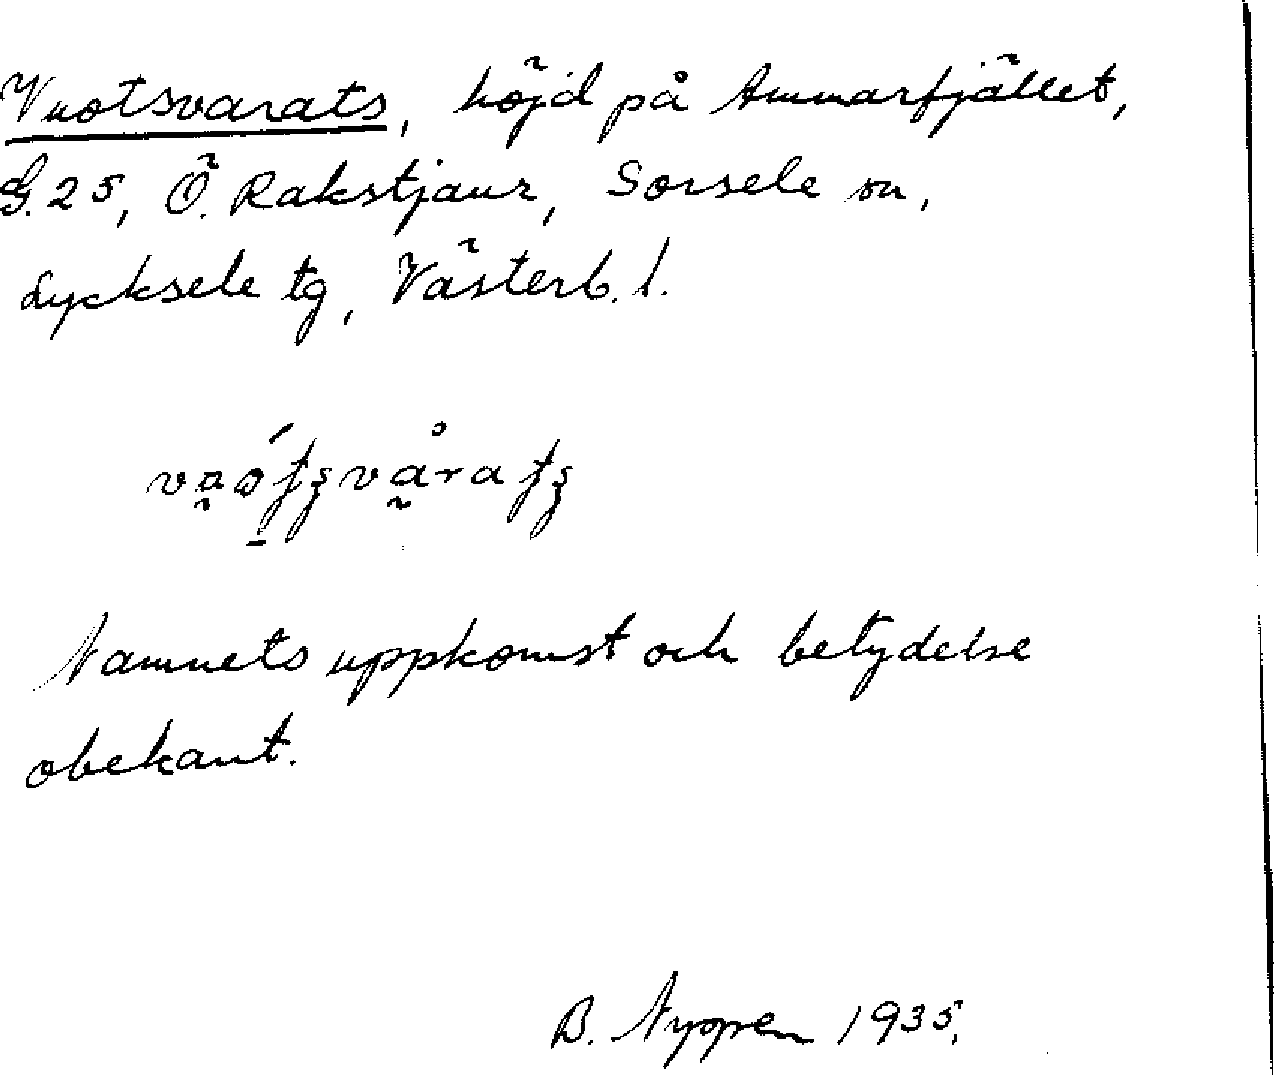 Vuotsvarats, höjd på Ammarfjället,
G. 25, Ö. Rakstjaur, Sorsele sn,
Lycksele tg, Västerb. l.
Namnets uppkomst och betydelse
obekant.
B. Nyppen 1935.